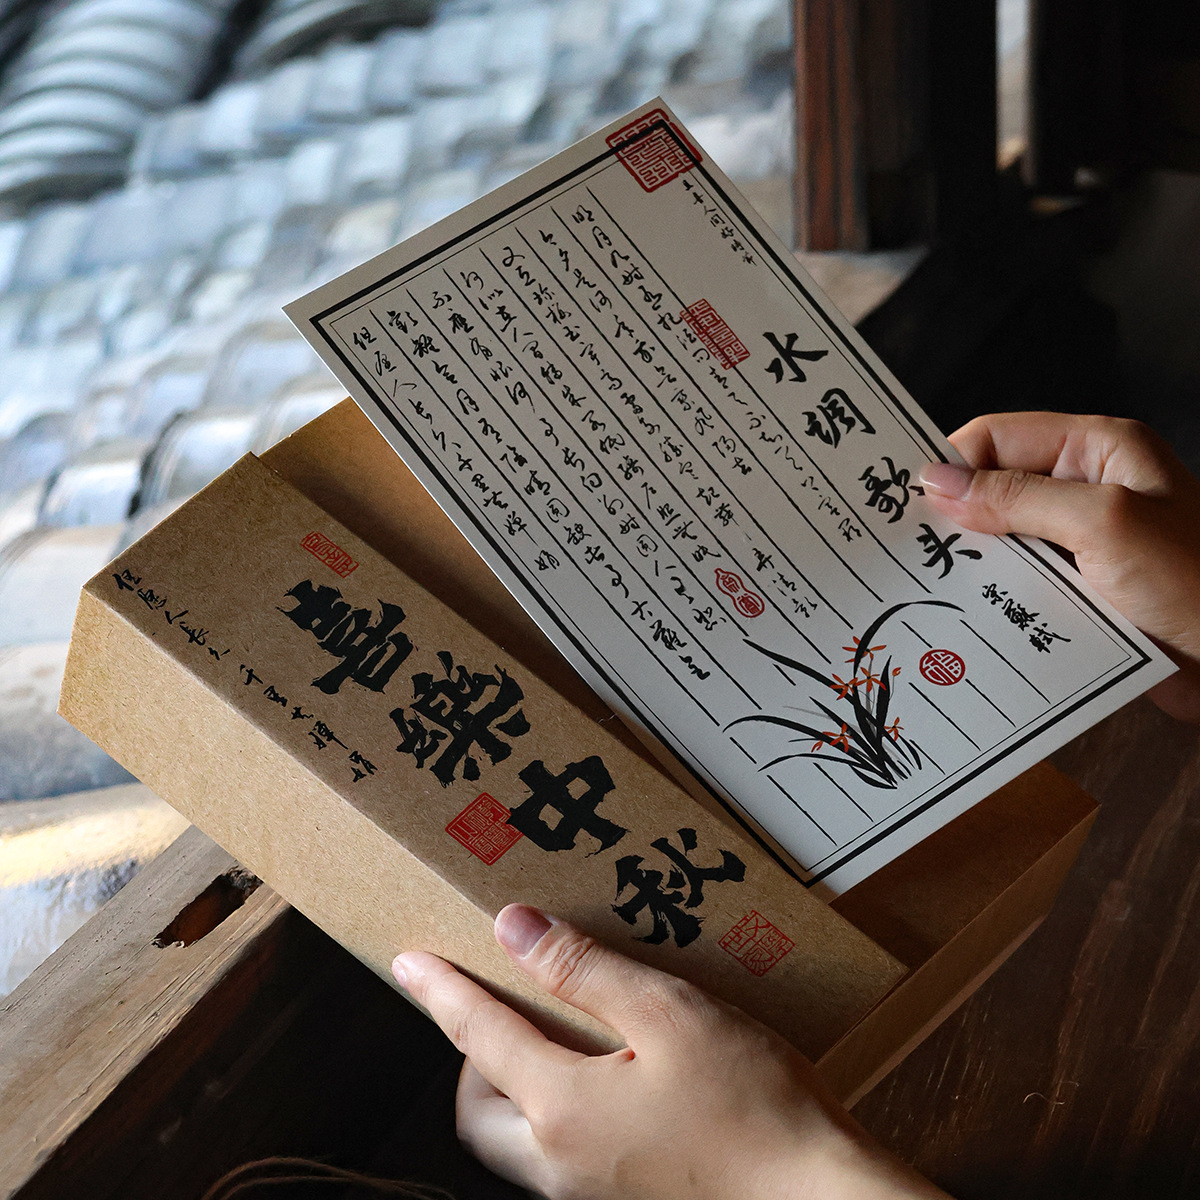 正是人间好时节
水调歌头
宋 蘇軾
明月几时有 把酒问青天 不知天上宫阙
今夕是何年 我欲乘风归去
又恐琼楼玉宇 高处不胜寒 起舞弄清影
何似在人间 转朱阁 低绮户 照无眠
不应有恨 何事长向别时圆 人有悲
欢离合 月有阴晴圆缺 此事古难全
但愿人长久 千里共婵娟
福
喜樂中秋
但愿人长久 千里共婵娟